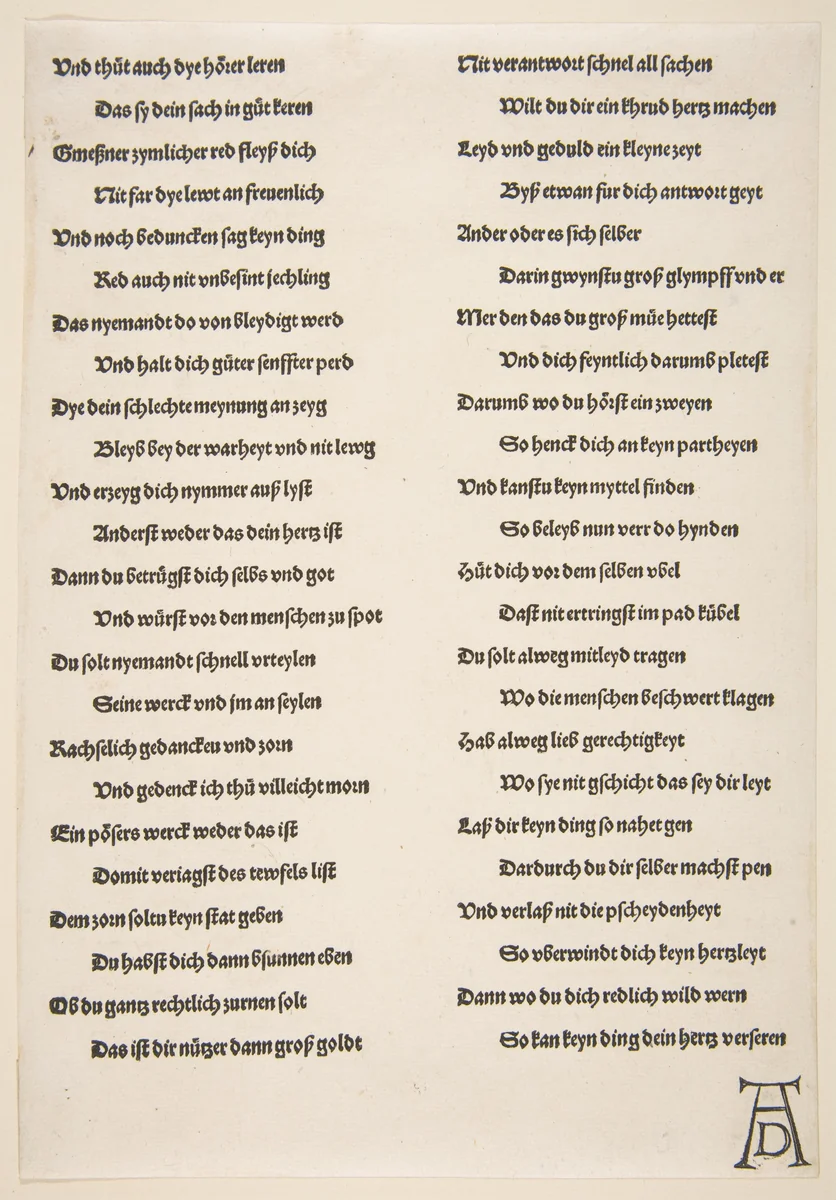 Vnd thüt auch dye hörer leren
Das sy dein sach in güt keren
Gmeßner zymlicher red fleyß dich
Nit far dye lewt an freuenlich
Vnd noch beduncken sag keyn ding
Red auch nit vnbesint jechling
Das nyemandt do von bleydigt werd
Vnd halt dich güter senffter perd
Dye dein schlechte meynung an zeyg
Bleyb bey der warheyt vnd nit lewg
Vnd erzeyg dich nymmer auß lyst
Anderst weder das dein hertz ist
Dann du betrügst dich selbs vnd got
Vnd würst vor den menschen zu spot
Du solt nyemandt schnell vrteylen
Seine werck vnd jm an seylen
Rachselich gedanckeu vnd zorn
Vnd gedenck ich thü villeicht morn
Ein pösers werck weder das ist
Domit veriagst des tewfels list
Dem zorn soltu keyn stat geben
Du habst dich dann bsunnen eben
Ob du gantz rechtlich zurnen solt
Das ist dir nützer dann groß goldt
Nit verantwort schnel all sachen
Wilt du dir ein khrud hertz machen
Leyd vnd geduld ein kleyne zeyt
Byß etwan fur dich antwort geyt
Ander oder es sich selber
Darin gwynstu groß glympff vnd er
Mer den das du groß müe hettest
Vnd dich feyntlich darumb pletest
Darumb wo du hörst ein zweyen
So henck dich an keyn partheyen
Vnd kanstu keyn myttel finden
So beleyb nun verr do hynden
Hüt dich vor dem selben vbel
Dast nit ertringst im pad kübel
Du solt alweg mitleyd tragen
Wo die menschen beschwert klagen
Hab alweg lieb gerechtigkeyt
Wo sye nit gschicht das sey dir leyt
Laß dir keyn ding so nahet gen
Dardurch du dir selber machst pen
Vnd verlaß nit die pscheydenheyt
So vberwindt dich keyn hertzleyt
Dann wo du dich redlich wild wern
So kan keyn ding dein hertz verseren
AD